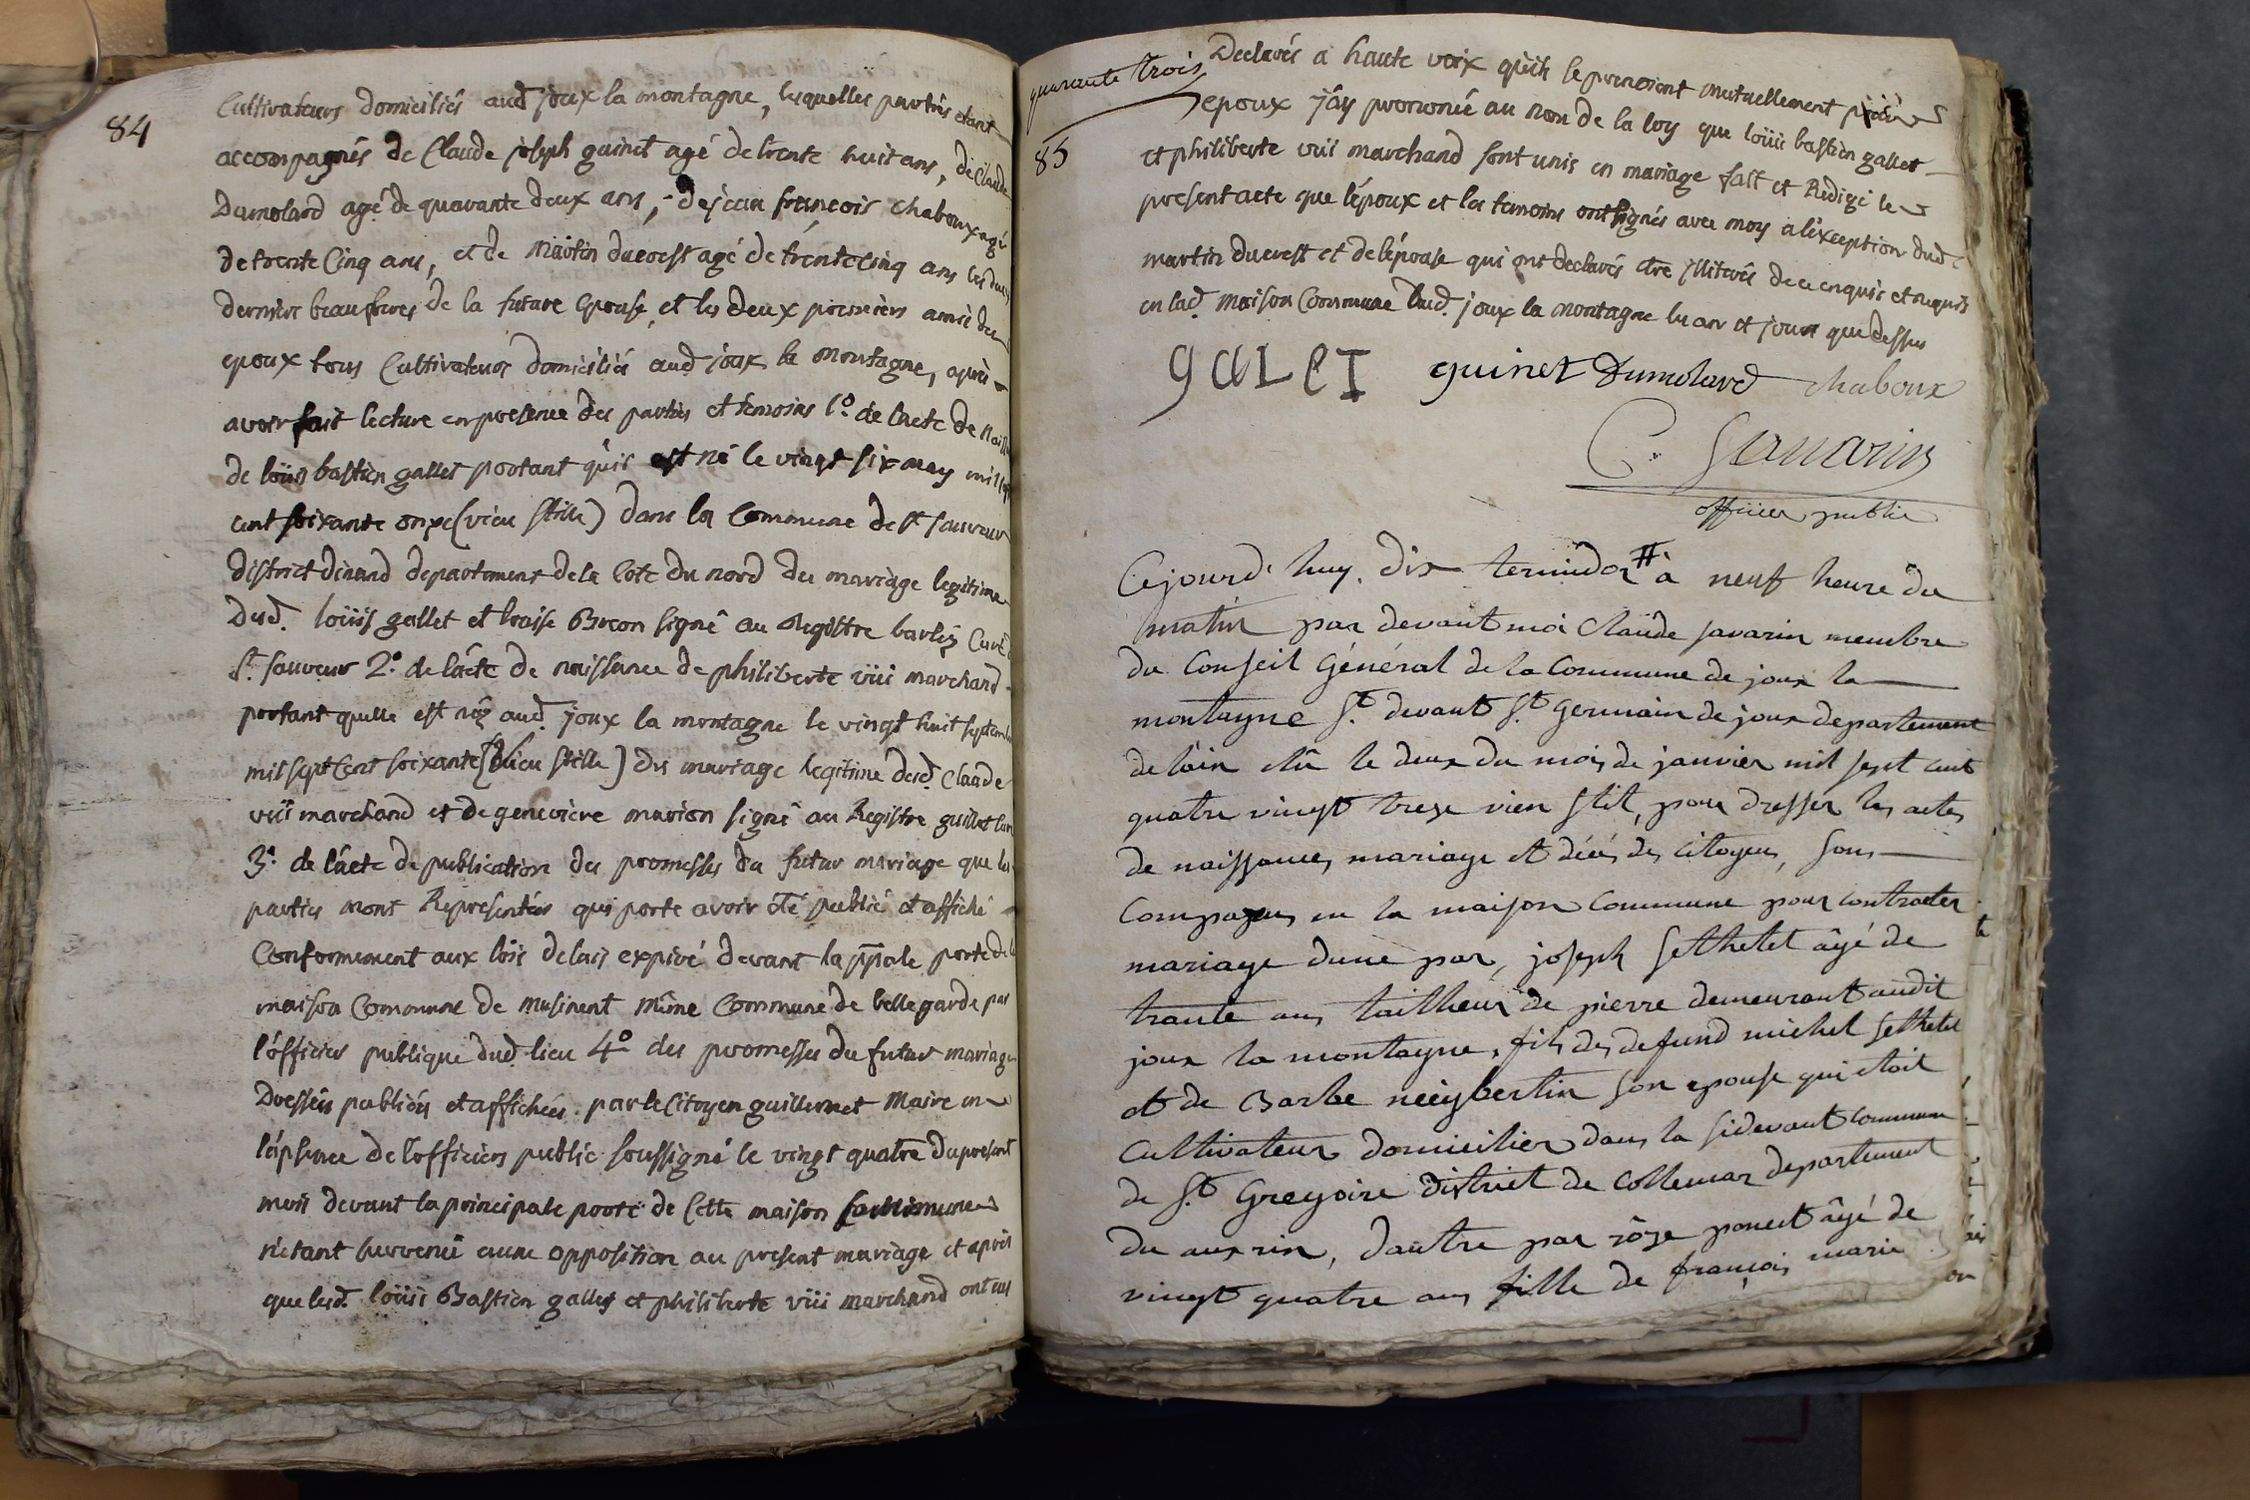 84
Cultivateurs domiciliés aud joux la montagne, lesquelles parties etant
accompagnés de Claude joseph guinet agé de trente huit ans, de Claude
Dumolard agé de quarante deux ans, de jean françois chaboux agé
de trente Cinq ans, et de martin ducrest agé de trente cinq ans les deux
derniers beaufreres de la future epouse, et les deux premiers amis du
epoux tous Cultivateurs domiciliés aud joux la montagne, après
avoir fait lecture en presence des parties et temoins 1º. de lacte de
de loüis bastien gallet portant quil est né le vingt six may mil
cent soixante onze (vieu stille) dans la Commune de St sauveur
district dinand departement de la Cote du nord du mariage legitime
dud. loüis gallet et Braise Breon signé au Registre barlez Curé
St. sauveur 2º. de lacte de naissance de philiberte viii marchand
portant quelle est née aud joux la montagne le vingt huit
mil sept cent soixante (vieu stille) du mariage legitime dud. Claude
viii marchand et de genevieve marion signé au Registre guillet
3º. de lácte de publication des promesses du futur mariage que les
parties mont Representées qui porte avoir été publié et affiché
Conformement aux lois delais expiré devant la ppale porte de
maison Commune de musinent même Commune de bellegarde par
l'officier publique dud lieu 4º des promesses du futur mariage
Dressées publiées et affichées par le Citoyen guillermet Maire en
lápsence de l'officier public soussigné le vingt quatre du present
mois devant la principale porte de Cette maison Commune
n'etant survenüe aune opposition au present mariage et après
que lesd. loüis Bastien gallet et philiberte viii marchand ont
quarante trois
85
Declarés a haute voix quils se prenoient mutuellement pour
epoux jáy prononcé au nom de la loy que loüis bastien gallet
et philiberte viii marchand sont unis en mariage fait et Redigé le
present acte que lépoux et les temoins ont signés avec moy a léxception dud
martin ducrest et de lépouse qui ont declarés être jlliterés de ce enquis et requis
en lad maison Commune dud. joux la montagne les an et jour que dessus
galet guinet Dumolard chaboux
C. Savarin
officier public
Cejourd'huy. dix termidor # à neuf heure du
matin par devant moi Claude savarin membre
du Conseil Général de la Commune de joux la
montagne st. devant St. Germain de joux departement
de láin élû le deux du mois de janvier mil sept cent
quatre vingt treze vien stil, pour dresser les actes
de naissances, mariage et décés des Citoyens, sons
Comparus en la maison Commune pour contracter
mariage dune par, joseph Sethelet âgé de
trante ans tailheur de pierre demeurant audit
joux la montagne, fils des defund michel Sethelet
et de Barbe neeybertin son epouse qui etoit
Cultivateur domicilier dans la sidevant commune
de St Gregoire district de Collemar departement
du aux rin, dautre par rôze poncet âgé de
vingt quatre ans fille de françois marie